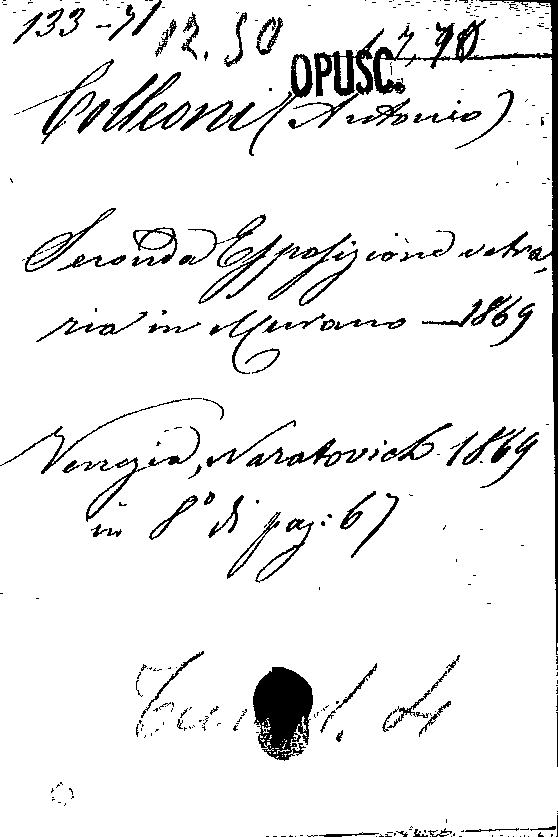 133-71 12.50
OPUSC.
Colleoni (Antonio)
Seconda Esposizione vetra,
ria in Murano — 1869
Venezia, Naratovich 1869
in 8° di pag: 67